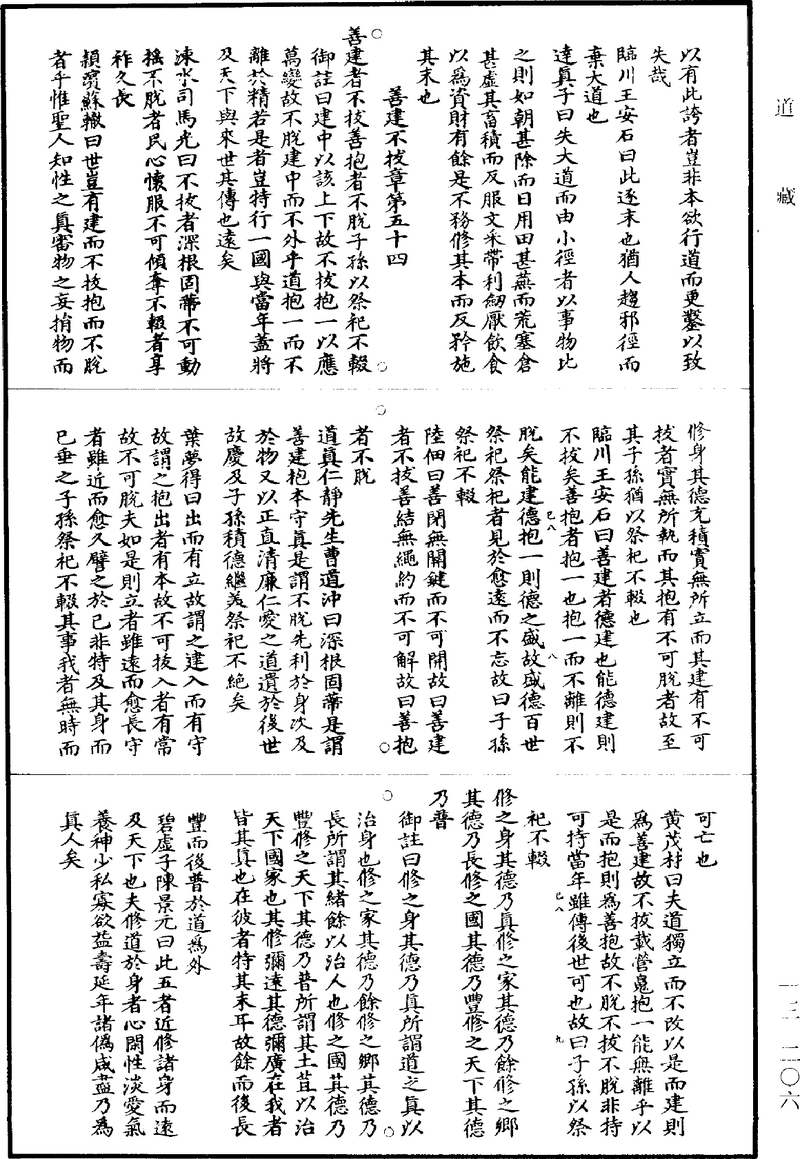 道藏
以有此誇者豈非本欲行道而更鑿以致
失哉
臨川王安石曰此逐末也猶人趨邪徑而
棄大道也
達真子曰失大道而由小徑者以事物比
之則如朝甚除而日用田甚蕪而荒塞倉
甚虛其畜積而反服文采帶利劒厭飲食
以為資財有餘是不務修其本而反矜施
其末也
善建不拔章第五十四
善建者不拔善抱者不脫子孫以祭祀不輟
御註曰建中以該上下故不拔抱一以應
萬變故不脫建中而不外乎道抱一而不
離於精若是者豈特行一國與當年蓋將
及天下與來世其傳也遠矣
涑水司馬光曰不拔者深根固蔕不可動
搖不脫者民心懷服不可傾奪不輟者享
祚久長
潁濱蘇轍曰世豈有建而不拔抱而不脫
者乎惟聖人知性之真審物之妄捐物而
修身其德充積實無所立而其建有不可
拔者實無所執而其抱有不可脫者故至
其子孫猶以祭祀不輟也
臨川王安石曰善建者德建也能德建則
不拔矣善抱者抱一也抱一而不離則不
脫矣能建德抱一則德之盛故盛德百世
祭祀祭祀者見於愈遠而不忘故曰子孫
祭祀不輟
陸佃曰善閉無關鍵而不可開故曰善建
者不拔善結無繩約而不可解故曰善抱
者不脫
道真仁靜先生曹道沖曰深根固蔕是謂
善建抱本守真是謂不脫先利於身次及
於物又以正直清廉仁愛之道遺於後世
故慶及子孫積德繼美祭祀不絕矣
葉夢得曰出而有立故謂之建入而有守
故謂之抱出者有本故不可拔入者有常
故不可脫夫如是則立者雖遠而愈長守
者雖近而愈久譬之於己非特及其身而
已垂之子孫祭祀不輟其事我者無時而
可亡也
黃茂材曰夫道獨立而不改以是而建則
為善建故不拔載營魄抱一能無離乎以
是而抱則為善抱故不脫不拔不脫非特
可持當年雖傳後世可也故曰子孫以祭
祀不輟
修之身其德乃真修之家其德乃餘修之鄉
其德乃長修之國其德乃豐修之天下其德
乃普
御註曰修之身其德乃真所謂道之真以
治身也修之家其德乃餘修之鄉其德乃
長所謂其緒餘以治人也修之國其德乃
豐修之天下其德乃普所謂其土苴以治
天下國家也其修彌遠其德彌廣在我者
皆其真也在彼者特其末耳故餘而後長
豐而後普於道為外
碧虛子陳景元曰此五者近修諸身而遠
及天下也夫修道於身者心閑性淡愛氣
養神少私寡欲益壽延年諸偽咸盡乃為
真人矣
一三—二〇六